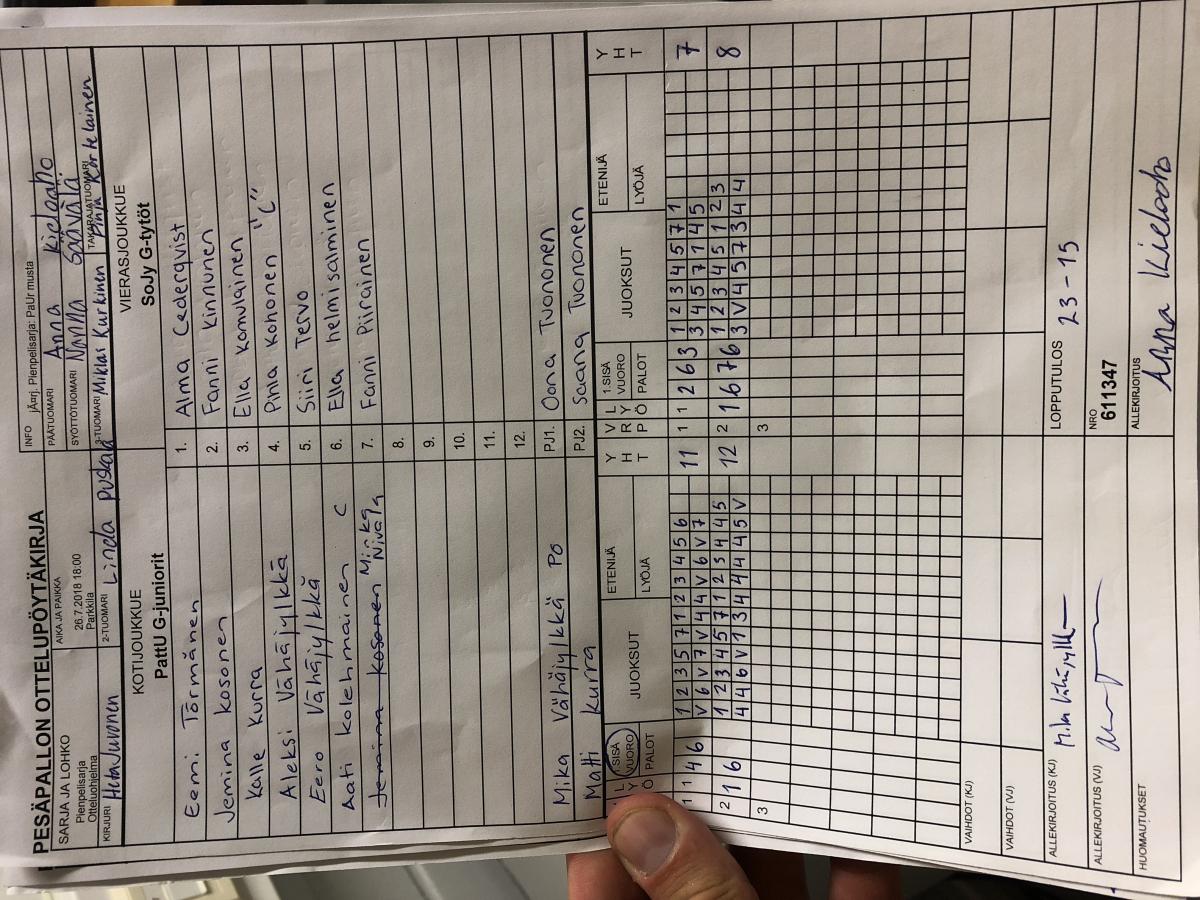 PESÄPALLON OTTELUPÖYTÄKIRJA
INFO jÄ¤rj. Pienpelisarja: PaUr musta
SARJA JA LOHKO
Pienpelisarja
Otteluohjelma
AIKA JA PAIKKA
26.7.2018 18:00
Parkkila
PÄÄTUOMARI Anna Kielaaho
SYÖTTÖTUOMARI Nanna Säävälä
KIRJURI Heta Juvonen
2-TUOMARI Linda Puskala
3-TUOMARI Miklas Kurkinen
TAKARAJATUOMARI Pinja Kortelainen
KOTIJOUKKUE
PattU G-juniorit
VIERASJOUKKUE
SoJy G-tytöt
Eemi Törmänen 1. Alma Cederqvist
Jemina Kosonen 2. Fanni Kinnunen
Kalle Kurra 3. Ella Komulainen
Aleksi Vähäjylkkä 4. Pinla Kohonen "C"
Eero Vähäjylkkä 5. Siiri Tervo
Aati Kolehmainen C 6. Ella helmisalminen
Jemina Kosonen Minka Nivala 7. Fanni Piirainen
8.
9.
10.
11.
12.
Mika Vähäjylkkä PO PJ1. Oona Tuononen
Matti Kurra PJ2. Saana Tuononen
L Y Ö 1.SISÄ VUORO PALOT JUOKSUT ETENIJÄ LYÖJÄ Y H T V R P L Y Ö 1.SISÄ VUORO PALOT JUOKSUT ETENIJÄ LYÖJÄ Y H T
1 1 4 6 1 2 3 5 7 1 2 3 4 5 6 11 1 1 2 6 3 1 2 3 4 5 7 1 7
V 6 V 7 V 4 4 V 6 V 7 3 4 5 7 1 4 5
2 1 6 1 2 3 4 5 7 1 2 3 4 4 5 12 2 1 6 7 6 1 2 3 4 5 1 2 3 8
4 4 6 V 1 3 4 4 4 4 5 V 3 V 4 5 7 3 4 4
3 3
VAIHDOT (KJ)
VAIHDOT (VJ)
ALLEKIRJOITUS (KJ) Mika Vähäjylkkä LOPPUTULOS 23-15
ALLEKIRJOITUS (VJ) NRO 611347
HUOMAUTUKSET ALLEKIRJOITUS Anna Kielaaho